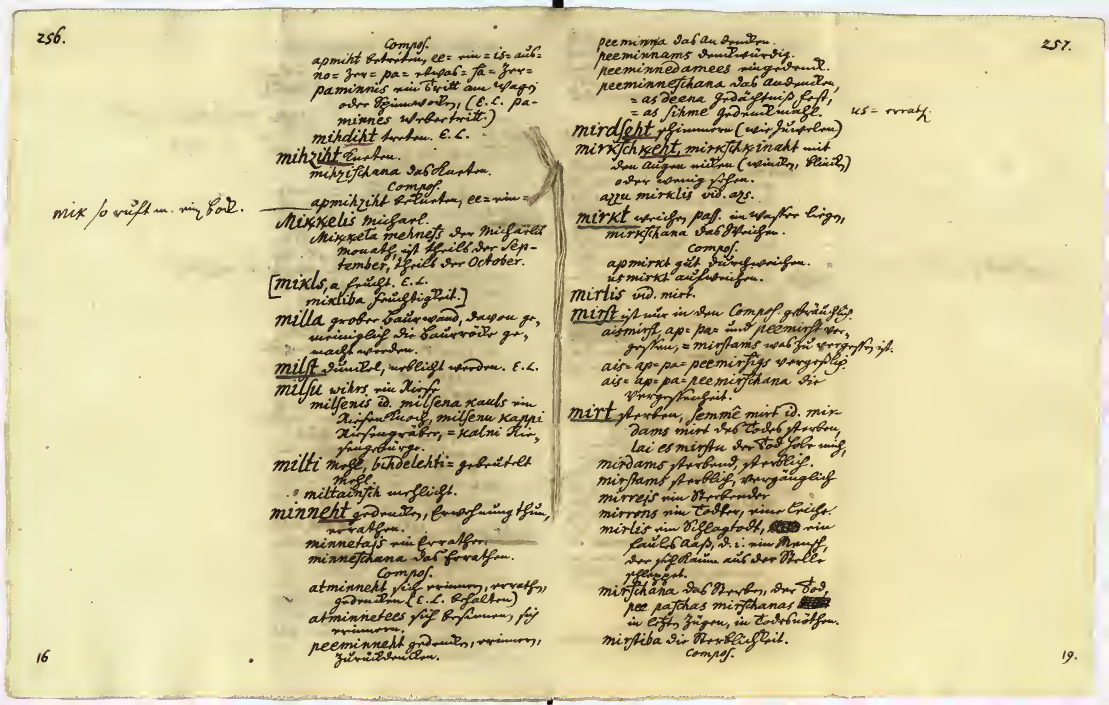 256.
Compos.
apmiht betreten, ee= ein= is= aus=
no= zer= pa= etwas= sa= zer=
paminnis ein Tritt am Wagen
oder Spinnwocken, (E.L. pa-
minnes webertritt.)
mihdiht treten. E.L.
mihziht kneten.
mihzischana das Kneten.
Compos.
apmihziht bekneten, ee= ein=
mik so ruft m. ein
Mikkelis Michael.
Mikkela mehness der Michaelis
monath, ist theils der Sep-
tember, theils der October.
[mikls, a feucht. E.L.
mikliba Feuchtigkeit.]
milla grober Baurwand, davon ge-
meiniglich die Baurröcke ge-
macht werden.
milst dunkel, neblicht werden. E.L.
milsu wihrs ein Riese
milsenis id. milsena kauls ein
Riesenknoch, milsenu kappi
Riesengräber, = kalni Rie-
sengebürge.
milti mehl, bihdelehti= gebeutelt
mehl.
miltainsch mehlicht.
minneht gedencken, Erwehnung thun,
errathen.
minnetajs ein Errather.
minneschana das Errathen.
Compos.
atminneht sich erinnern, errathen,
gedencken (E.L. behalten)
atminnetees sich besinnen, sich
erinnern.
peeminneht gedencken, erinnern,
zurückdencken.
16
257.
peeminna das Andencken.
peeminnams denckwürdig.
peeminnedamees eingedenck.
peeminneschana das Andencken,
= as deena Gedächtniß fest,
= as sihme Gedenckmahl.
us= errath.
mirdseht schimmern (wie Juwelen)
mirkschkeht, mirkschkinaht mit
den Augen nicken (wincken, blicken)
oder wenig sehen.
azzu mirklis vid. azs.
mirkt weichen pass. in wasser liegen,
mirkschana das Weichen.
Compos.
apmirkt gut durchweichen.
usmirkt aufweichen.
mirlis vid. mirt.
mirst ist nur in den Compos. gebräuchlich.
aismirst, ap= pa= und peemirst ver-
gessen, = mirstams was zu vergessen ist.
ais= ap= pa= peemirsigs vergeßlich.
ais= ap= pa= peemirschana die
Vergessenheit.
mirt sterben, semmê mirt id. mir-
dams mirt des Todes sterben,
lai es mirstu der Tod hole mich,
mirdams sterbend, sterblich.
mirstams sterblich, vergänglich
mirrejs ein Sterbender
mirrons ein Todter, eine Leiche.
mirlis ein Schlagtodt, ein
faules Aaß, d.i. ein Mensch,
der sich kaum aus der Stelle
schleppet.
mirschana das Sterben, der Tod,
pee paschas mirschanas
in letzten Zügen, in Todesnöthen.
mirstiba die Sterblichkeit.
Compos.
19.